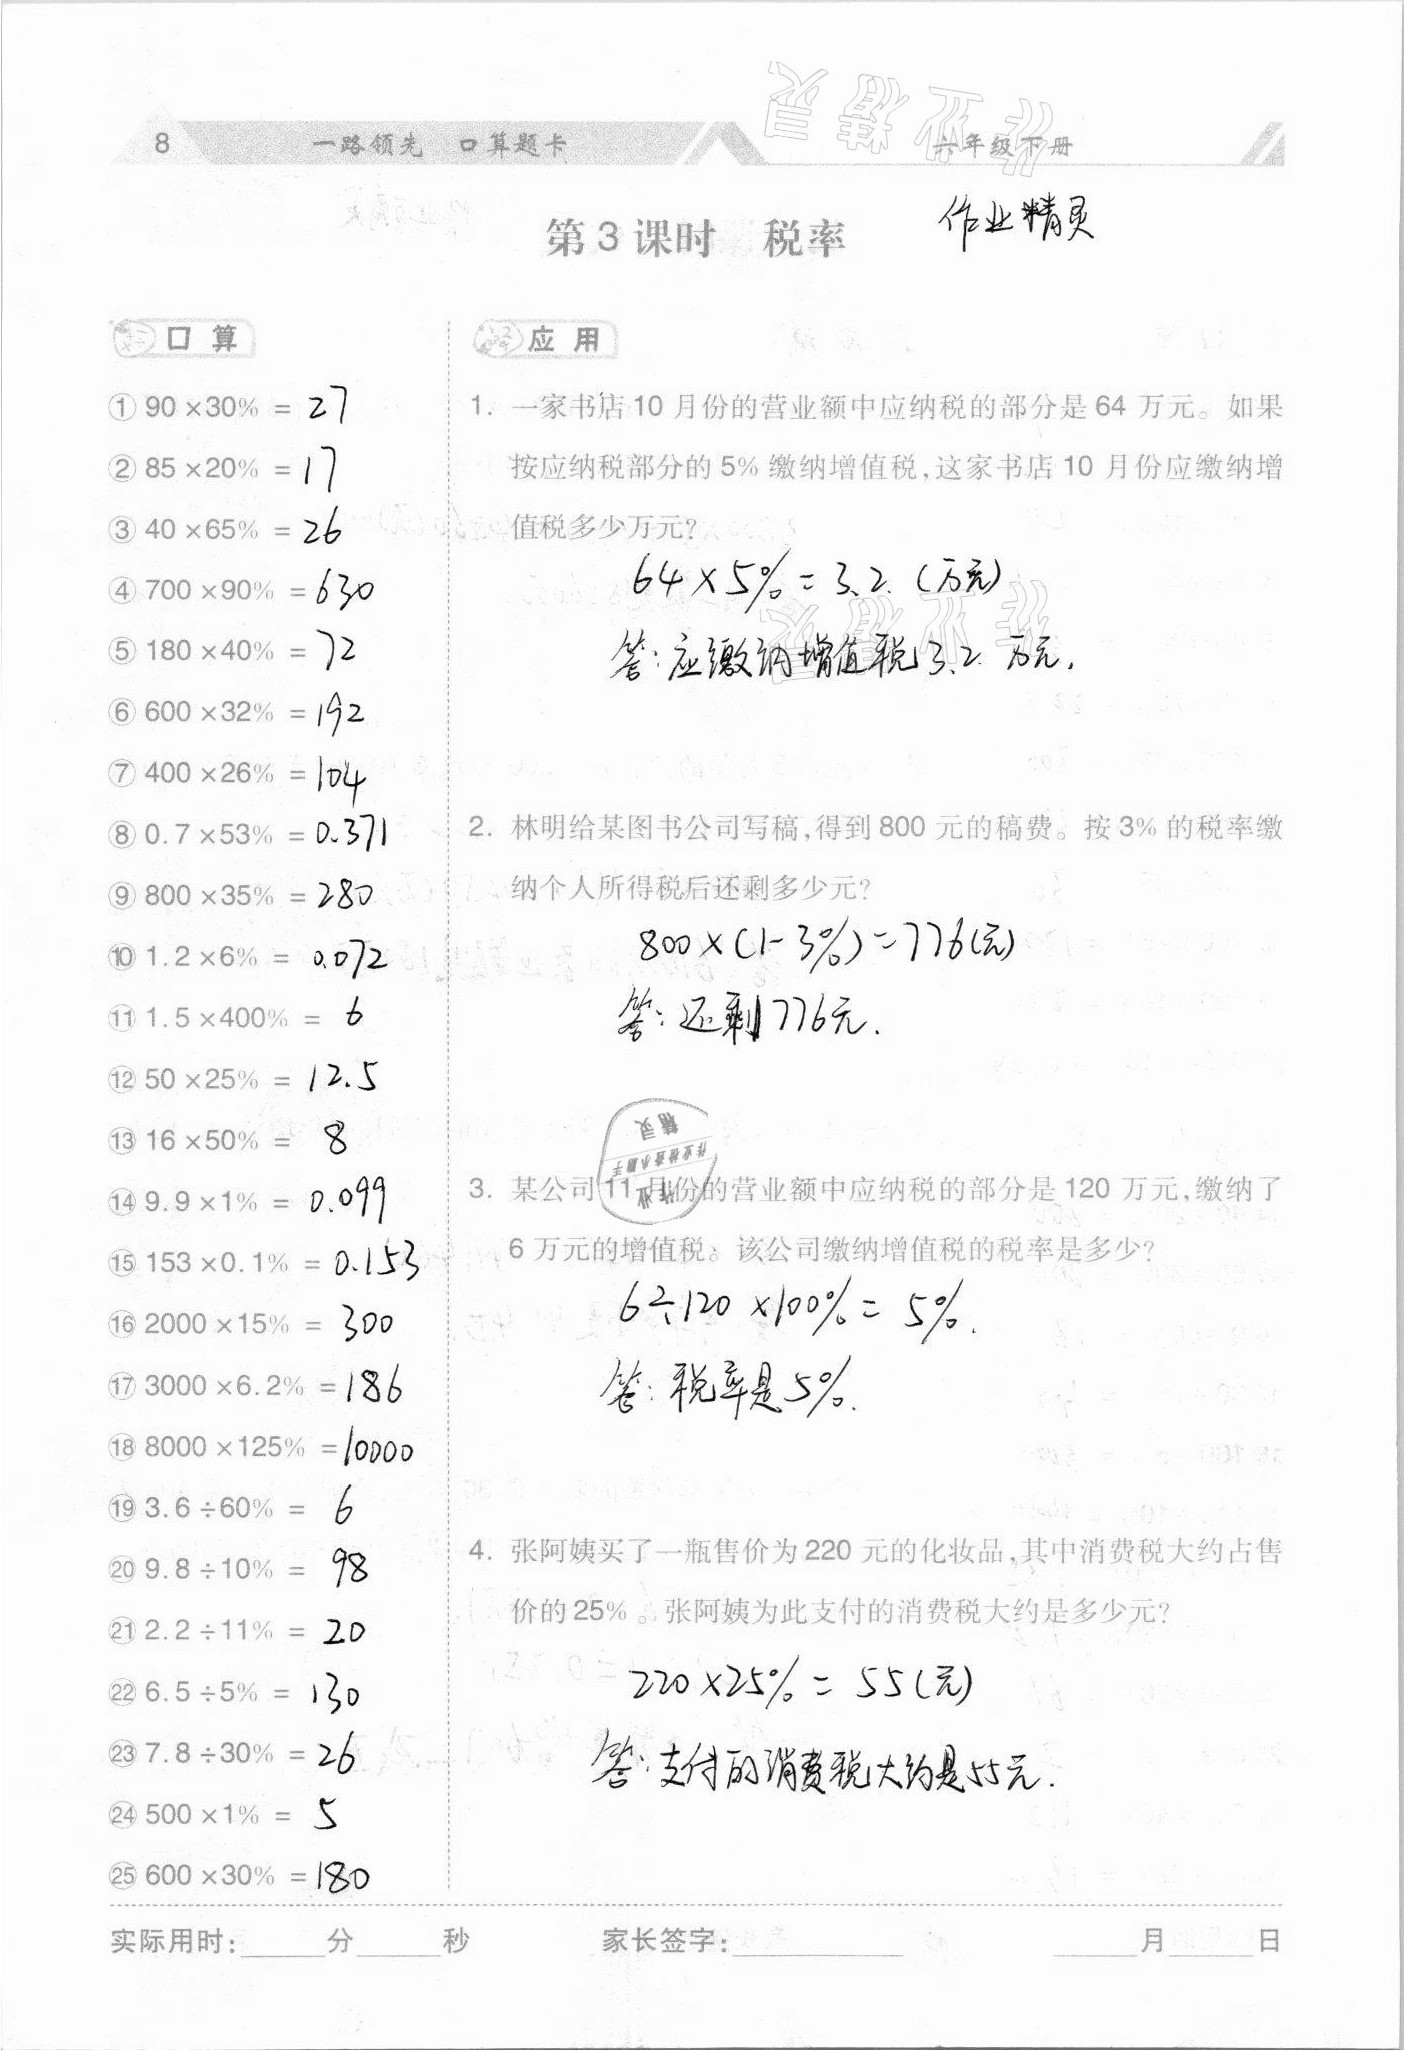 8 一路领先 口算题卡 六年级下册
作业精灵
第3课时 税率
作业精灵
口算
① 90×30% = 27
② 85×20% = 17
③ 40×65% = 26
④ 700×90% = 630
⑤ 180×40% = 72
⑥ 600×32% = 192
⑦ 400×26% = 104
⑧ 0.7×53% = 0.371
⑨ 800×35% = 280
⑩ 1.2×6% = 0.072
⑪ 1.5×400% = 6
⑫ 50×25% = 12.5
⑬ 16×50% = 8
⑭ 9.9×1% = 0.099
⑮ 153×0.1% = 0.153
⑯ 2000×15% = 300
⑰ 3000×6.2% = 186
⑱ 8000×125% = 10000
⑲ 3.6÷60% = 6
⑳ 9.8÷10% = 98
㉑ 2.2÷11% = 20
㉒ 6.5÷5% = 130
㉓ 7.8÷30% = 26
㉔ 500×1% = 5
㉕ 600×30% = 180
应用
1. 一家书店10月份的营业额中应纳税的部分是64万元。如果
按应纳税部分的5%缴纳增值税,这家书店10月份应缴纳增
值税多少万元?
64×5%=3.2(万元)
作业精灵
答:应缴纳增值税3.2万元.
2. 林明给某图书公司写稿,得到800元的稿费。按3%的税率缴
纳个人所得税后还剩多少元?
800×(1-3%)=776(元)
答:还剩776元.
精灵
作业检查小助手
作业
3. 某公司11月份的营业额中应纳税的部分是120万元,缴纳了
6万元的增值税。该公司缴纳增值税的税率是多少?
6÷120×100%=5%.
答:税率是5%.
4. 张阿姨买了一瓶售价为220元的化妆品,其中消费税大约占售
价的25%。张阿姨为此支付的消费税大约是多少元?
220×25%=55(元)
答:支付的消费税大约是55元.
实际用时:______分______秒 家长签字:____________ ______月______日